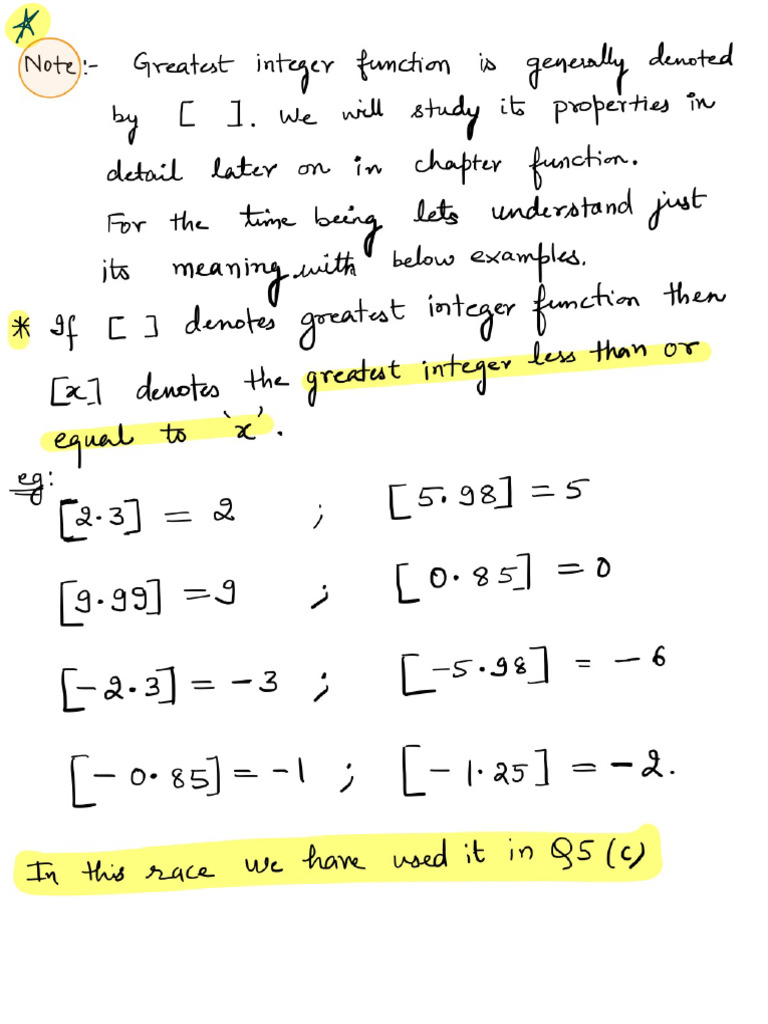 Note:- Greatest integer function is generally denoted
by [ ]. We will study its properties in
detail later on in chapter function.
For the time being lets understand just
its meaning with below examples.
* If [ ] denotes greatest integer function then
[x] denotes the greatest integer less than or
equal to 'x'.
eg:
[2.3] = 2 ; [5.98] = 5
[9.99] = 9 ; [0.85] = 0
[-2.3] = -3 ; [-5.98] = -6
[-0.85] = -1 ; [-1.25] = -2.
In this race we have used it in Q5 (c)